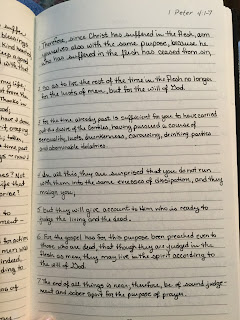 1 Peter 4:1-7
1 Therefore, since Christ has suffered in the flesh, arm
yourselves also with the same purpose, because he
who has suffered in the flesh has ceased from sin,
2 so as to live the rest of the time in the flesh no longer
for the lusts of men, but for the will of God.
3 For the time already past is sufficient for you to have carried
out the desire of the Gentiles, having pursued a course of
sensuality, lusts, drunkenness, carousing, drinking parties
and abominable idolatries.
4 In all this, they are surprised that you do not run
with them into the same excesses of dissipation, and they
malign you;
5 but they will give account to Him who is ready to
judge the living and the dead.
6 For the gospel has for this purpose been preached even to
those who are dead, that though they are judged in the
flesh as men, they may live in the spirit according to
the will of God.
7 The end of all things is near; therefore, be of sound judge-
ment and sober spirit for the purpose of prayer.